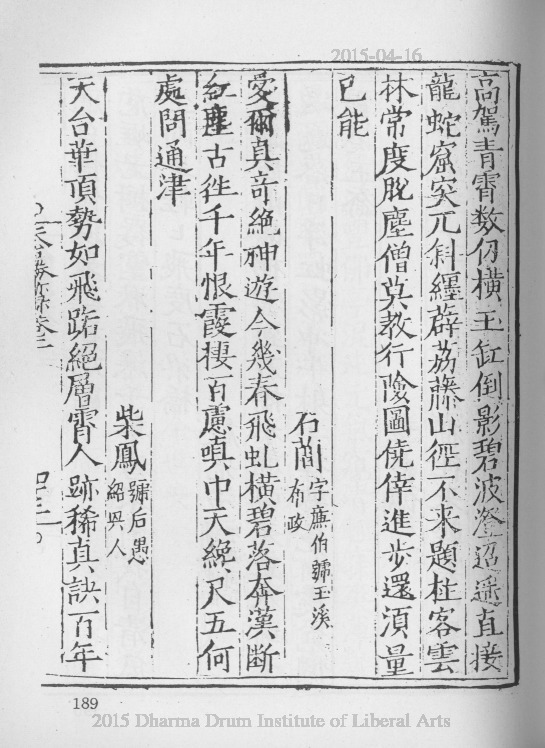 2015-04-16
高駕青霄数仭橫玉缸倒影碧波澄迢遥直接
龍蛇窟突兀斜纏薜荔藤山徑不来題柱客雲
林常度脫塵僧莫教行險圖僥倖進步還須量
已能
石䦨 字廉伯號玉溪
有政
愛爾真奇絶神遊今幾春飛虬橫碧落奔漢断
紅塵古徃千年恨霞棲百慮嗔中天纔尺五何
處問通津
柴鳳 號后愚
紹兴人
天台華頂勢如飛踞絕層霄人跡稀真訣百年
天台勝蹟录卷三
四十二
189
2015 Dharma Drum Institute of Liberal Arts